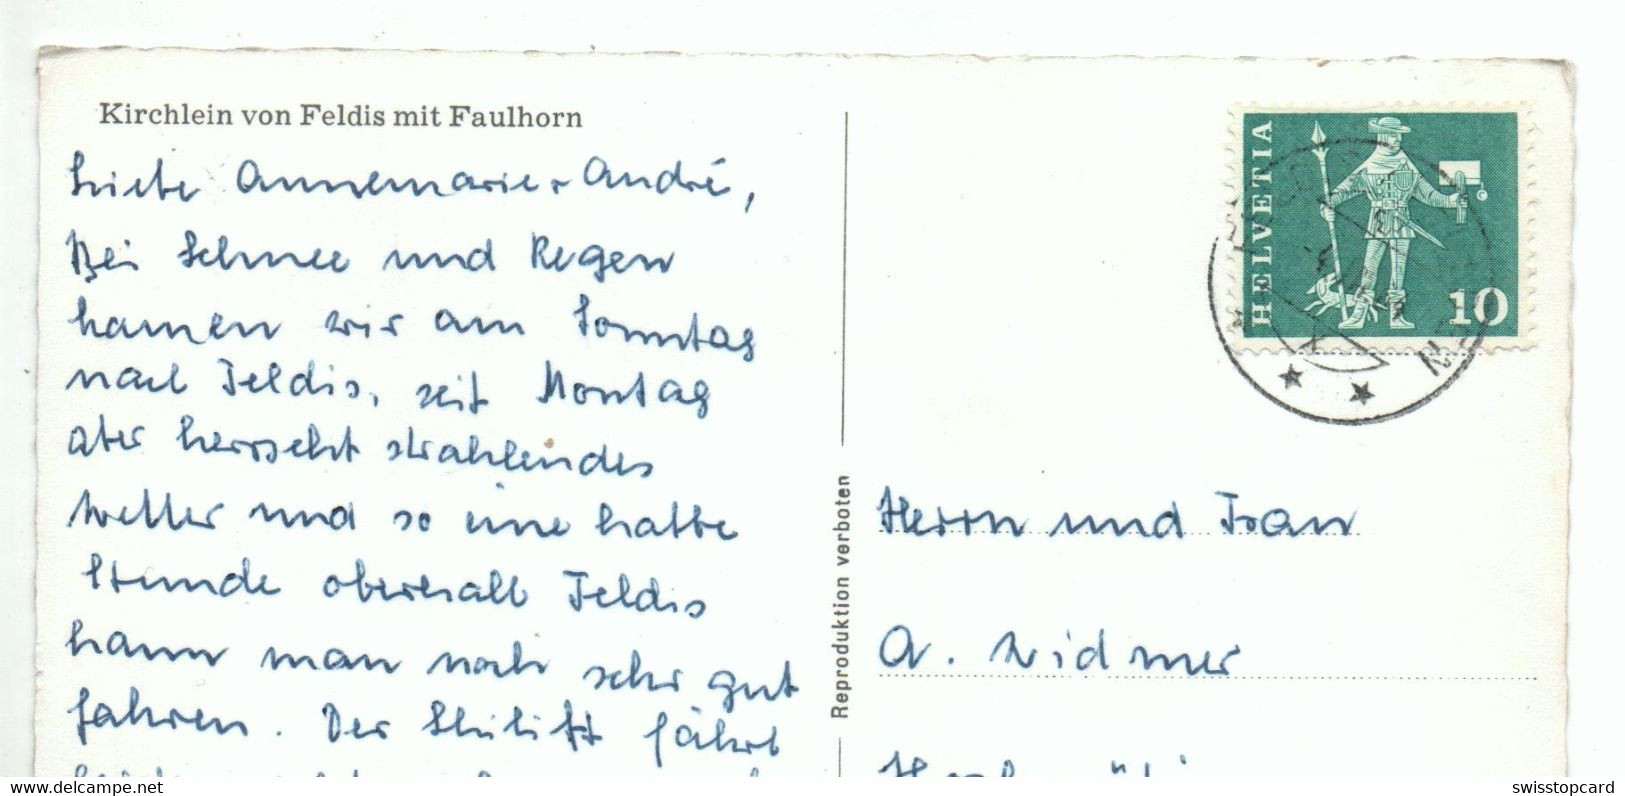 Kirchlein von Feldis mit Faulhorn
Liebe Annemarie + André,
Bei Schnee und Regen
kamen wir am Sonntag
nach Feldis, seit Montag
aber herrscht strahlendes
Wetter und so eine halbe
Stunde oberhalb Feldis
kann man noch sehr gut
fahren. Der Skilift fährt
Reproduktion verboten
HELVETIA
10
Herrn und Frau
A. Widmer
https://www.delcampe.net
swisstopcard